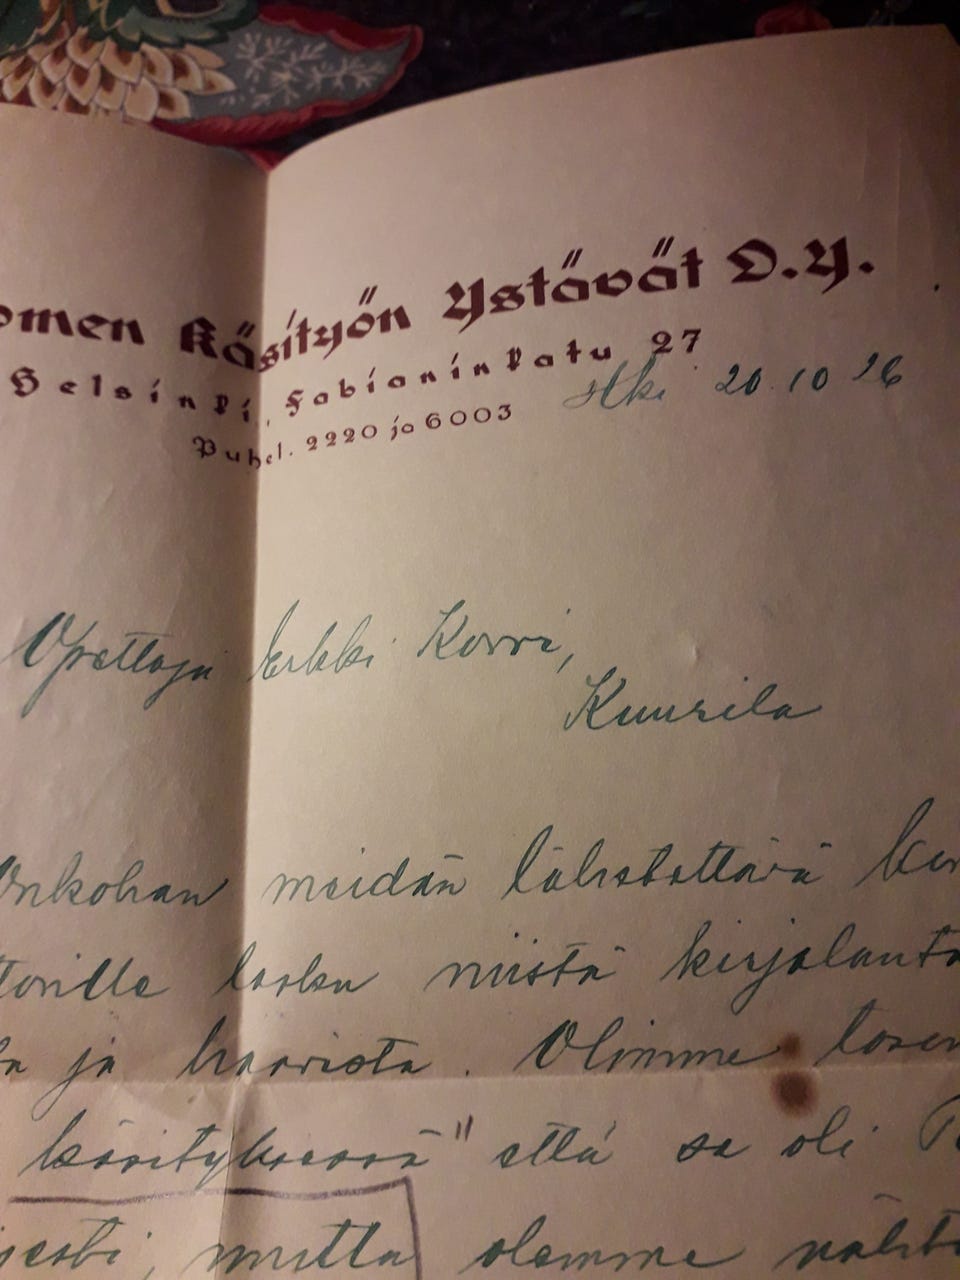 omen Käsityön Ystävät O.Y.
Helsinki, Fabianinkatu 27
Puhel. 2220 ja 6003
Hki 20.10 26
Opettaja Erkki Korri,
Kuurila
Onkohan meidän lähetettävä
torille lasku niistä kirjalauta
ja haarista. Olimme tosen
käsityksessä" että se oli
mutta olemme